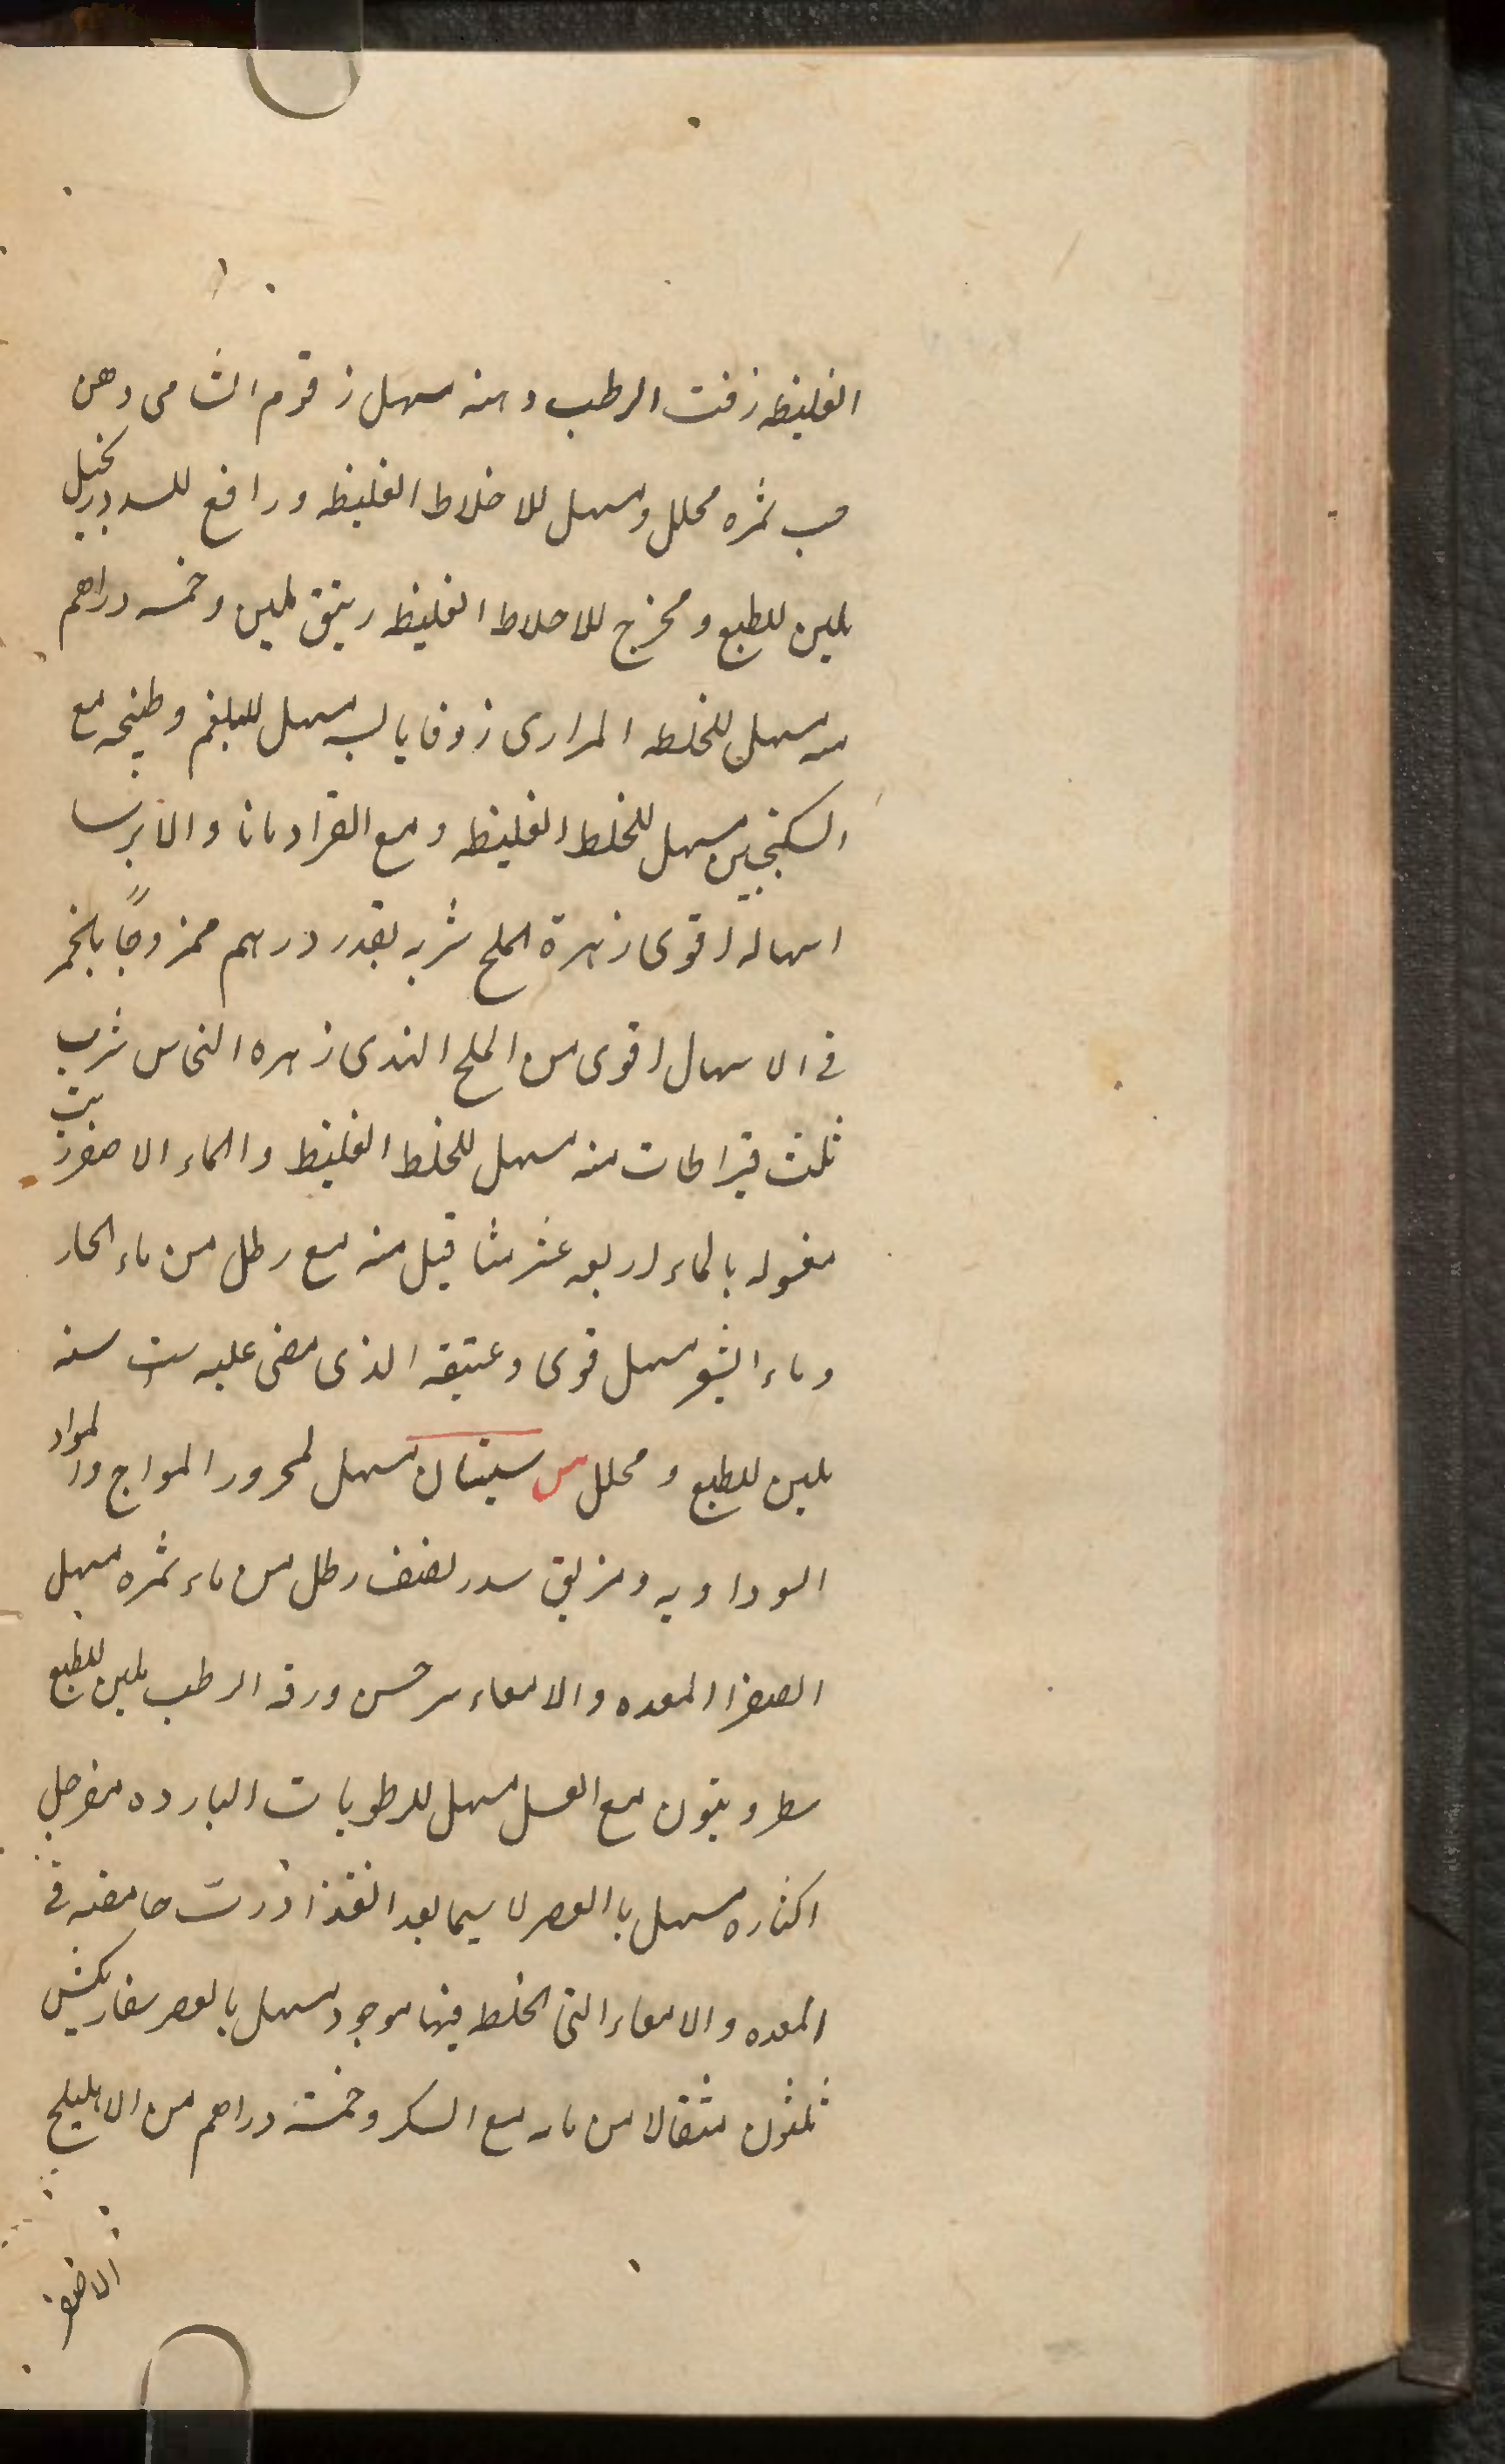 الغليظه زفت الرطب دهنه مسهل زقوم الشامى دهن
حب ثمره محلل ومسهل للاخلاط الغليظه ورافع للسدد زنجبيل
ملين للطبع ومخرج للاخلاط الغليظ زيبق ملين وخمسه دراهم
منه مسهل للخلطه المرارى زوفا يابسه مسهل للبلغم وطبيخه مع
السكنجبين مسهل للخلط الغليظه ومع القرادمانا والايرسا
اسهاله اقوى زهرة الملح شربه بقدر درهم ممزوجاً بالخمر
فى الاسهال اقوى من الملح الهندى زهره النحاس شرب
ثلث قيراطات منه مسهل للخلط الغليظ والماء الاصفر زيت
مغسوله بالماء اربعه عشر مثاقيل منه مع رطل من ماء الحار
وماء الشعير مسهل قوى وعتيقه الذى مضى عليه ست سنه
ملين للطبع ومحلل س سبستان مسهل لمحرور المزاج والمواد
السوداويه ومزيق سدر نصف رطل من ماء ثمره مسهل
الصفرا المعده والامعاء سرخس ورقه الرطب ملين للطبع
سطرونيون مع العسل مسهل للرطوبات البارده سفرجل
اكثاره مسهل بالعصر لاسيما بعد الغذا زرت حامضه فى
المعده والامعاء التى الخلط فيها موجود مسهل بالعصر سفاربكشى
ثلثون مثقالا من مائه مع السكر وخمسة دراهم من الاهليلج
الاصفر